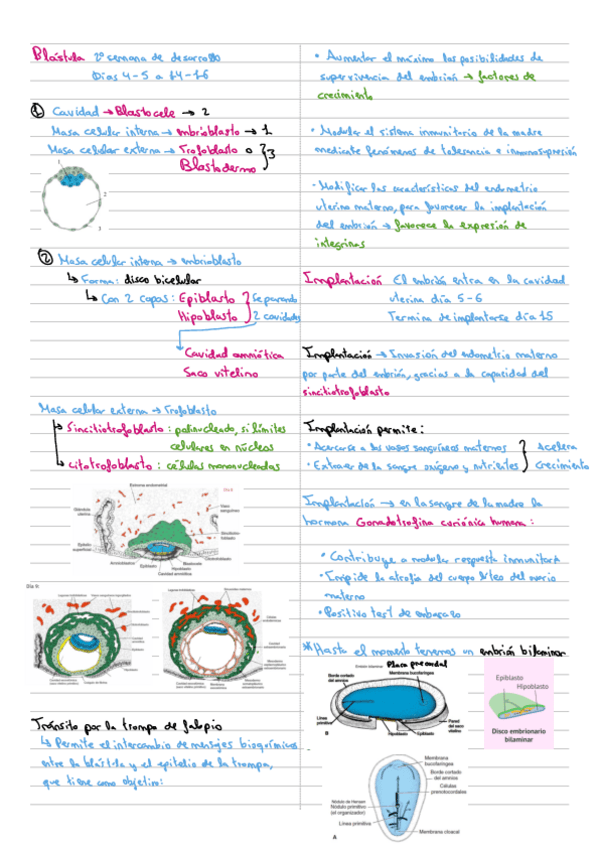 Blástula 2ª semana de desarrollo
Días 4-5 a 14-16
① Cavidad → Blastocele → 2
Masa celular interna → embrioblasto → 1
Masa celular externa → Trofoblasto o } 3
Blastodermo
1
2
3
② Masa celular interna → embrioblasto
↳ Forma: disco bicelular
↳ Con 2 capas: Epiblasto } Separando
Hipoblasto 2 cavidades
Cavidad amniótica
Saco vitelino
Masa celular externa → Trofoblasto
↳ Sincitiotrofoblasto: polinucleado, si límites
celulares en núcleos
↳ Citotrofoblasto: células mononucleadas
Estroma endometrial
Día 8
Glándula uterina
Vaso sanguíneo
Epitelio superficial
Amnioblastos
Epiblasto
Hipoblasto
Cavidad amniótica
Día 9:
Tránsito por la trompa de falopio
↳ Permite el intercambio de mensajes bioquímicos
entre la blástula y el epitelio de la trompa,
que tiene como objetivo:
• Aumentar el máximo las posibilidades de
supervivencia del embrión → factores de
crecimiento
• Modular el sistema inmunitario de la madre
mediante fenómenos de tolerancia e inmunosupresión
• Modificar las características del endometrio
uterino materno, para favorecer la implantación
del embrión → favorece la expresión de
integrinas
Implantación El embrión entra en la cavidad
uterina día 5-6
Termina de implantarse día 15
Implantación → Invasión del endometrio materno
por parte del embrión, gracias a la capacidad del
sincitiotrofoblasto
Implantación permite:
• Acercarse a los vasos sanguíneos maternos } Acelera
• Extraer de la sangre oxígeno y nutrientes crecimiento
Implantación → en la sangre de la madre la
hormona Gonadotrofina coriónica humana:
• Contribuye a modular respuesta inmunitaria
• Impide la atrofia del cuerpo lúteo del ovario
materno
• Positivo test de embarazo
* Hasta el momento tenemos un embrión bilaminar
Placa precordal
Borde cortado del amnios
Membrana bucofaríngea
Línea primitiva
Hipoblasto
Epiblasto
Pared del saco vitelino
B
Epiblasto
Hipoblasto
Disco embrionario
bilaminar
Membrana bucofaríngea
Borde cortado del amnios
Células precordales
Nódulo de Hensen
Nódulo primitivo
(el organizador)
Línea primitiva
Membrana cloacal
A